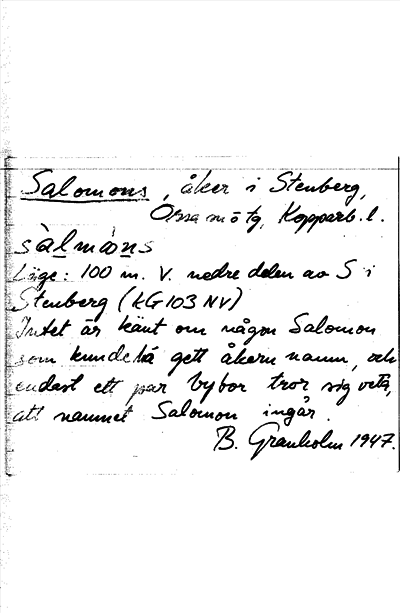 Salomons, åker i Stenberg,
Orsa mötg, Kopparb. l.
sàlmòns
Läge: 100 m. V. nedre delen av S i
Stenberg (KG103 NV)
Intet är känt om någon Salomon
som kunde ha gett åkern namn, och
endast ett par bybor tror sig veta,
att namnet Salomon ingår.
B. Granholm 1947.